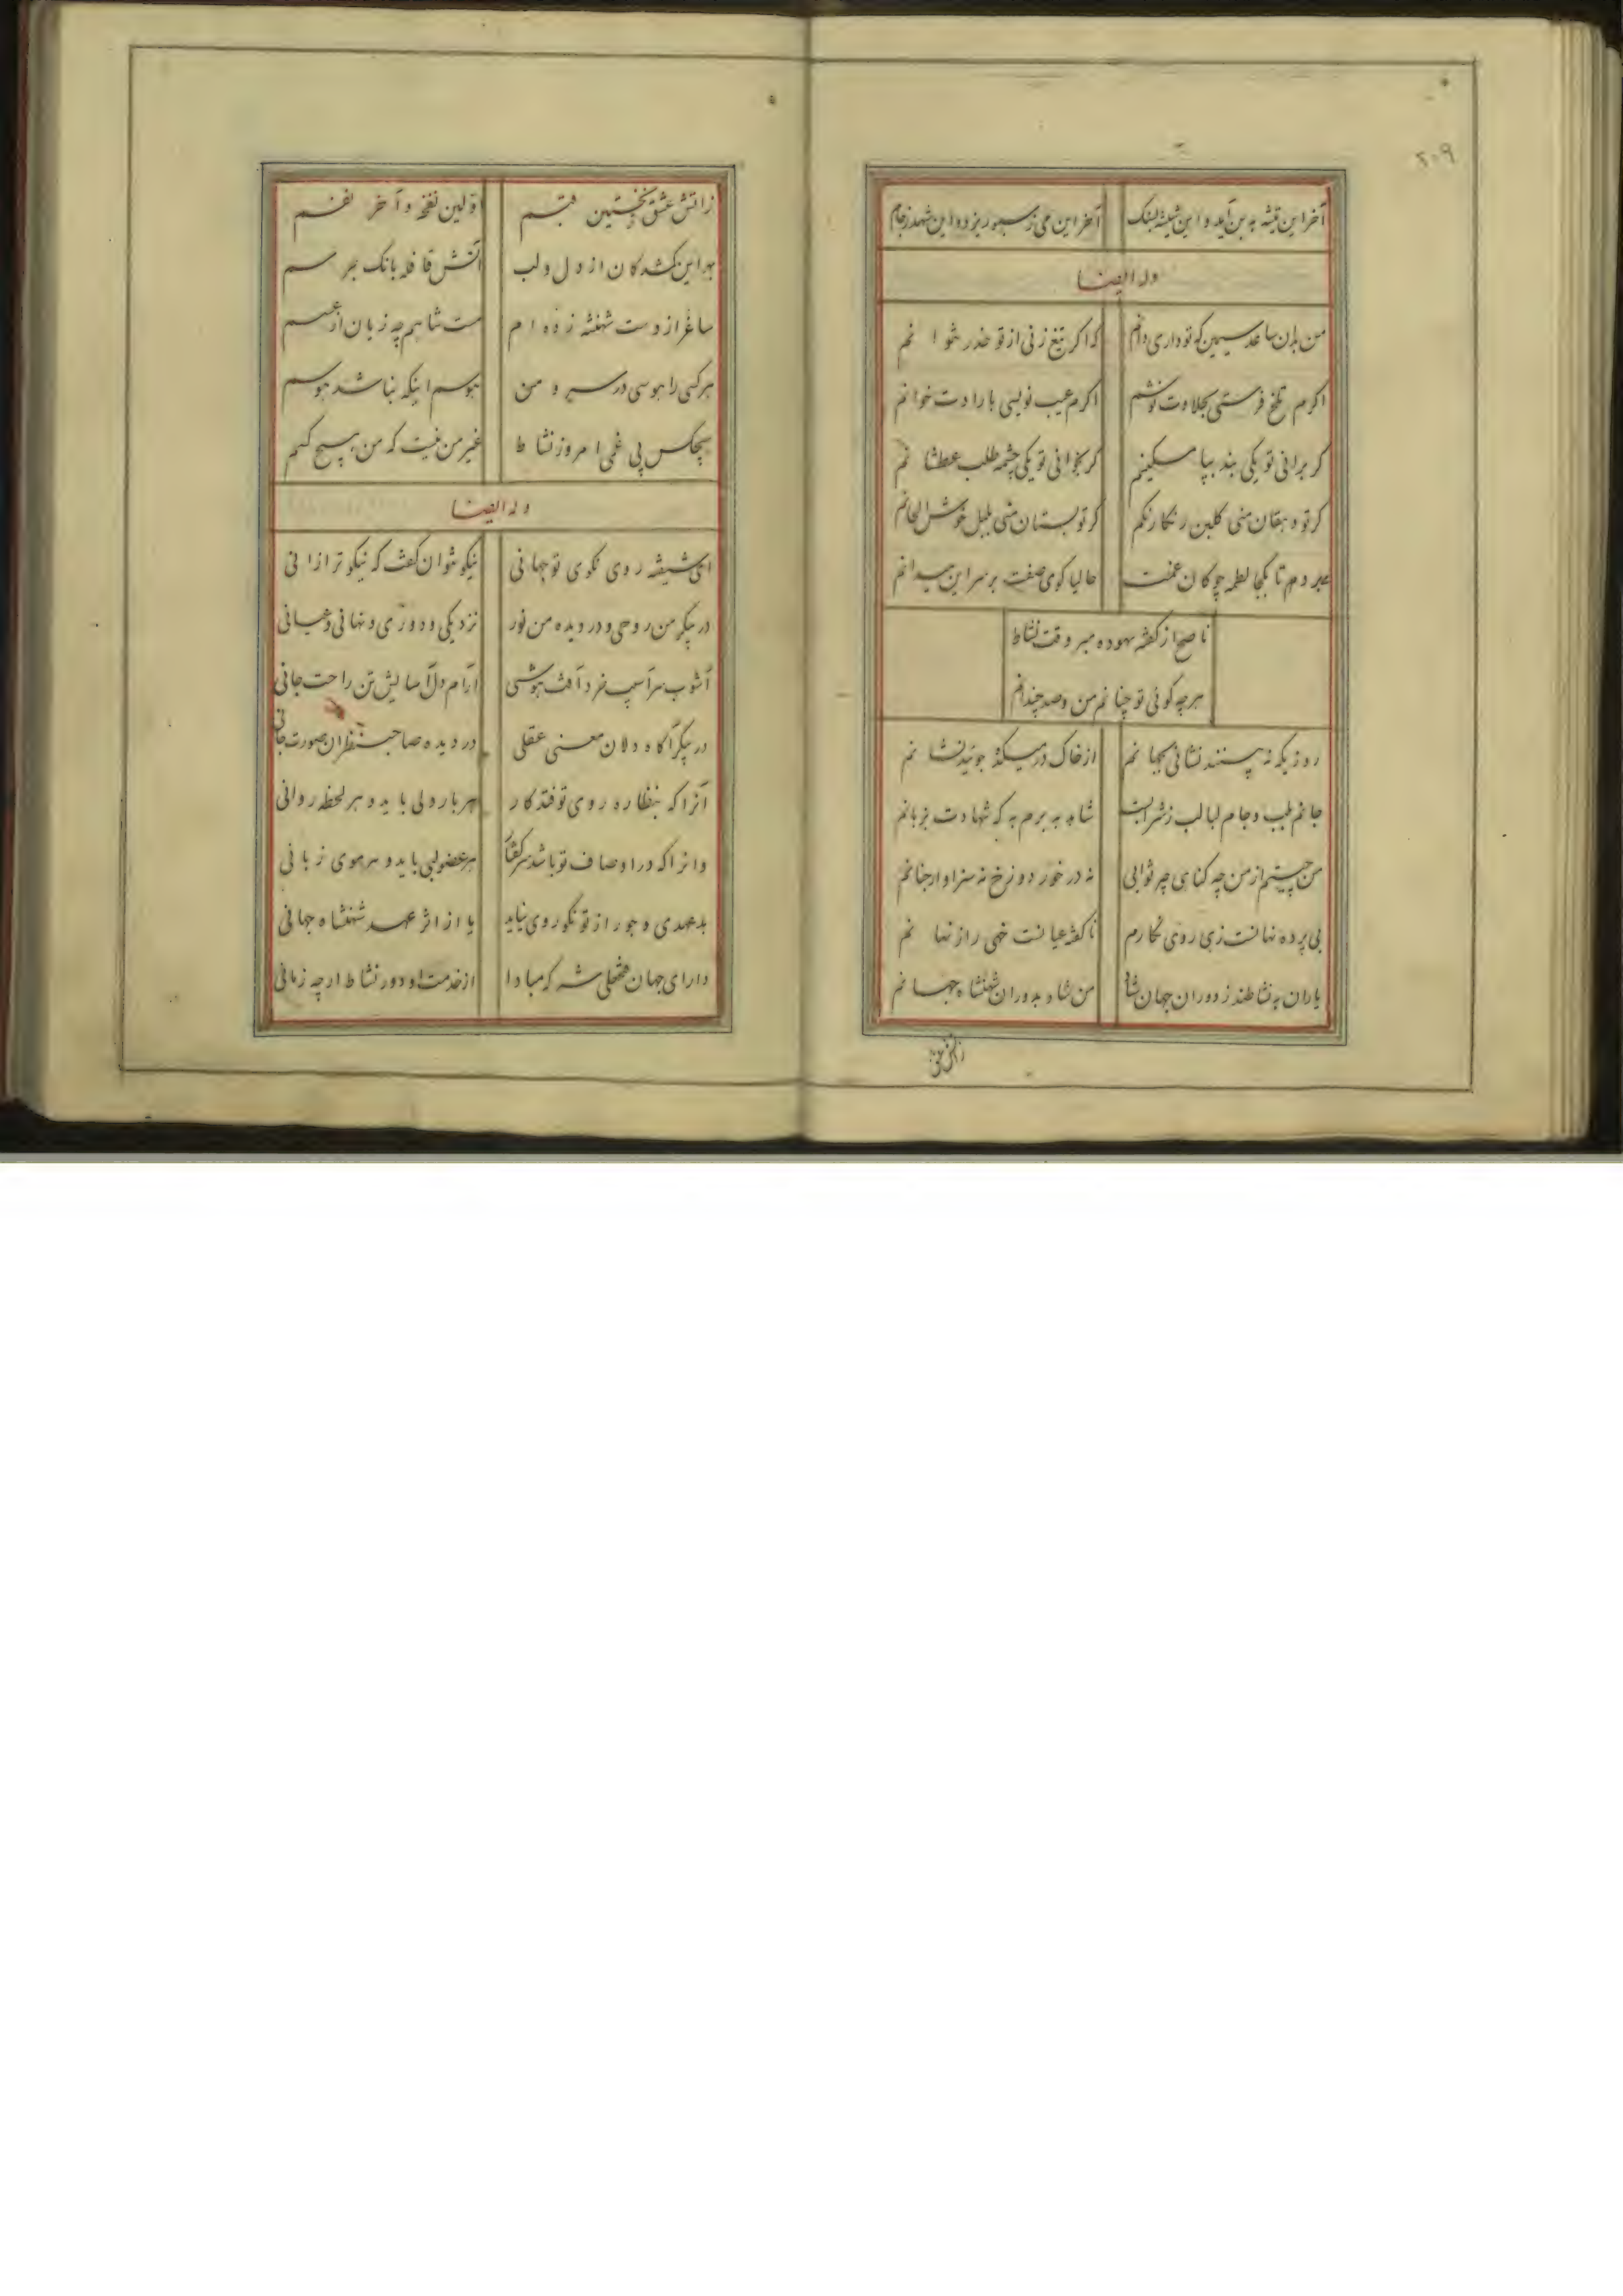 ۲۰۹
آخر این تیشه به بن آید و این شیشه بسنک آخر این می ز سبو ریزد و این شهد ز جام
وله ایضا
من بدان ساعد سیمین که تو داری دانم که اکر تیغ زنی از تو حذر نتوانم
اکرم تلخ فرستی بحلاوت نوشم اکرم عیب نویسی بارادت خوانم
کر برانی تو یکی بند بپا مسکینم کر بخوانی تو یکی چشمه طلب عطشانم
کر تو دهقان منی کلبن رنکارنکم کر تو بستان منی بلبل خوش الحانم
میدوم تا بکجا لطمه چوکان غمت حالیا کوی صفت بر سر این میدانم
ناصحا از کفته بیهوده مبر وقت نشاط
هرچه کوئی تو چنانم من و صد چندانم
روزیکه نه بینند نشانی بجهانم از خاک در میکده جوئید نشانم
جانم طرب و جام لبالب ز شرابست شاهد به برم به که شهادت بزبانم
من چیستم از من چه کناهی چه ثوابی نه در خور دوزخ نه سزاوار جنانم
بی پرده نهانست زهی روی نکارم ناکفته عیانست خهی راز نهانم
یاران به نشاطند ز دوران جهان شاد من شاد بدوران شهنشاه جهانم
زاتش عشق نخستین قبسم اولین نفخه و آخر نفسم
بهر این کمشدکان از دل و لب آتش قافله بانک جرسم
ساغر از دست شهنشه زده ام مست شاهم چه زیان از عسسم
هر کسی را هوسی در سر و من هوسم اینکه نباشد هوسم
هیچکس بی غمی امروز نشاط غیر من نیست که من هیچ کسم
وله ایضا
ای شیفته روی نکوی تو جهانی نیکو نتوان کفت که نیکوتر از آنی
در پیکر من روحی و در دیده من نور نزدیکی و دوری و نهانی و عیانی
آشوب سر آسیب خرد آفت هوشی آرام دل آسایش تن راحت جانی
در پیکر آکاه دلان معنی عقلی در دیده صاحب نظران صورت جانی
آنرا که بنظاره روی تو فتد کار هر بار دلی باید و هر لحظه روانی
وانرا که در اوصاف تو باشد سر کفتار هر عضو لبی باید و هر موی زبانی
بد عهدی و جور از تو نکو روی نیاید با از اثر عهد شهنشاه جهانی
دارای جهان فتحعلی شه که مبادا از خدمت او دور نشاط ارچه زمانی